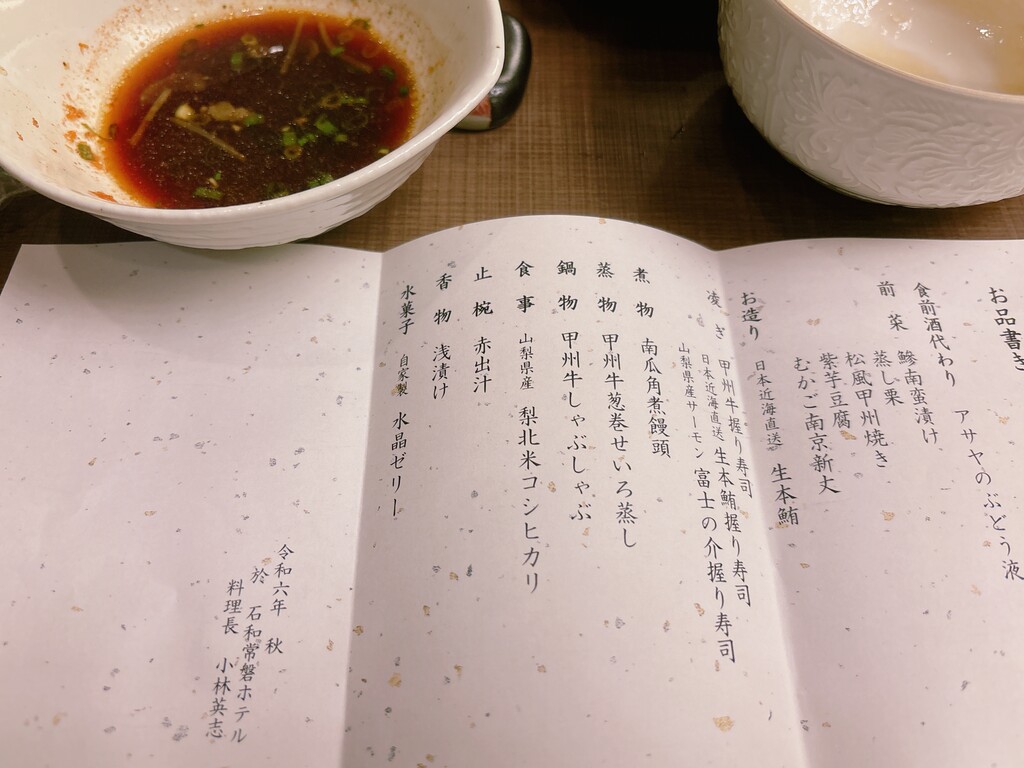 お品書き
食前酒代わり アサヤのぶどう液
前菜 鯵南蛮漬け
蒸し栗
松風甲州焼き
紫芋豆腐
むかご南京新丈
お造り 日本近海直送 生本鮪
凌ぎ 甲州牛握り寿司
日本近海直送 生本鮪握り寿司
山梨県産サーモン 富士の介握り寿司
煮物 南瓜角煮饅頭
蒸物 甲州牛葱巻せいろ蒸し
鍋物 甲州牛しゃぶしゃぶ
食事 山梨県産 梨北米コシヒカリ
止椀 赤出汁
香物 浅漬け
水菓子 自家製 水晶ゼリー
令和六年 秋
於 石和常磐ホテル
料理長 小林英志